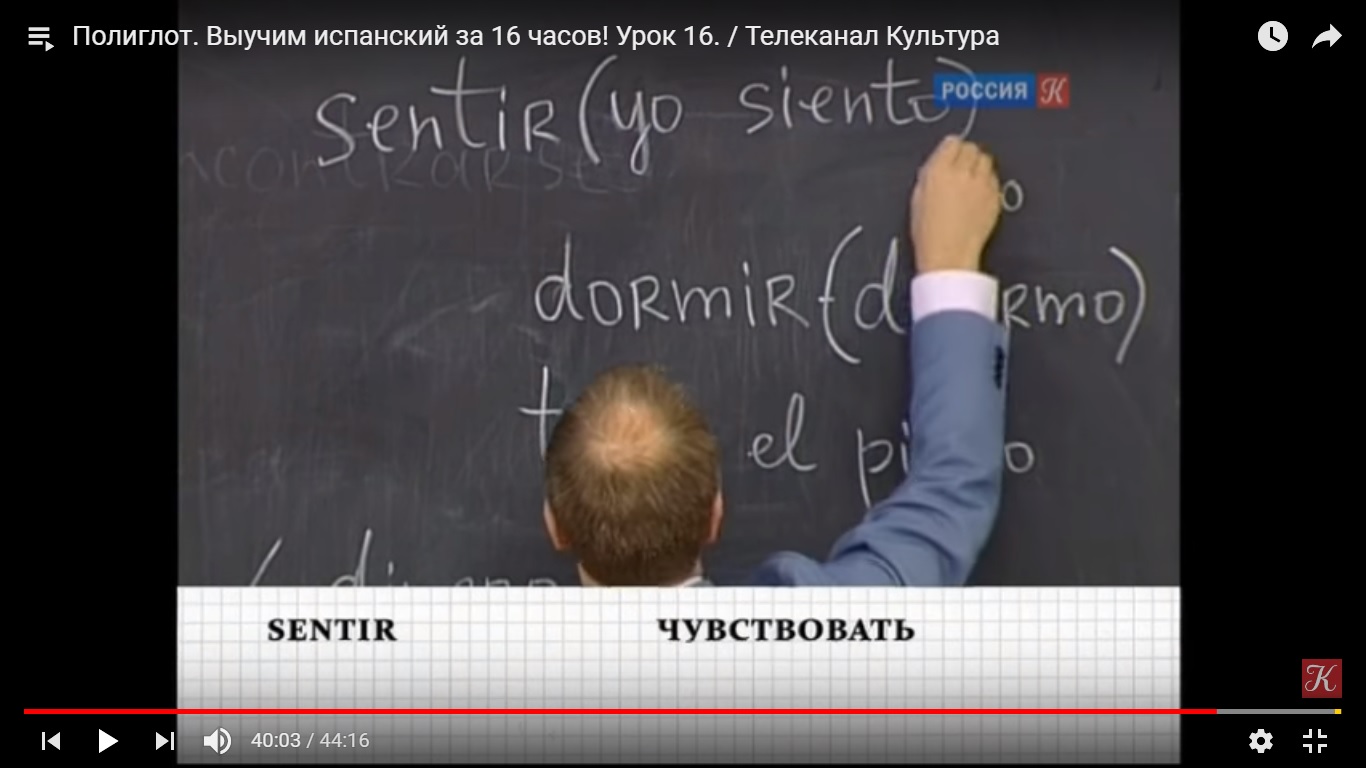 Полиглот. Выучим испанский за 16 часов! Урок 16. / Телеканал Культура
РОССИЯ К
sentir (yo siento)
dormir (
el
SENTIR ЧУВСТВОВАТЬ
К
40:03 / 44:16